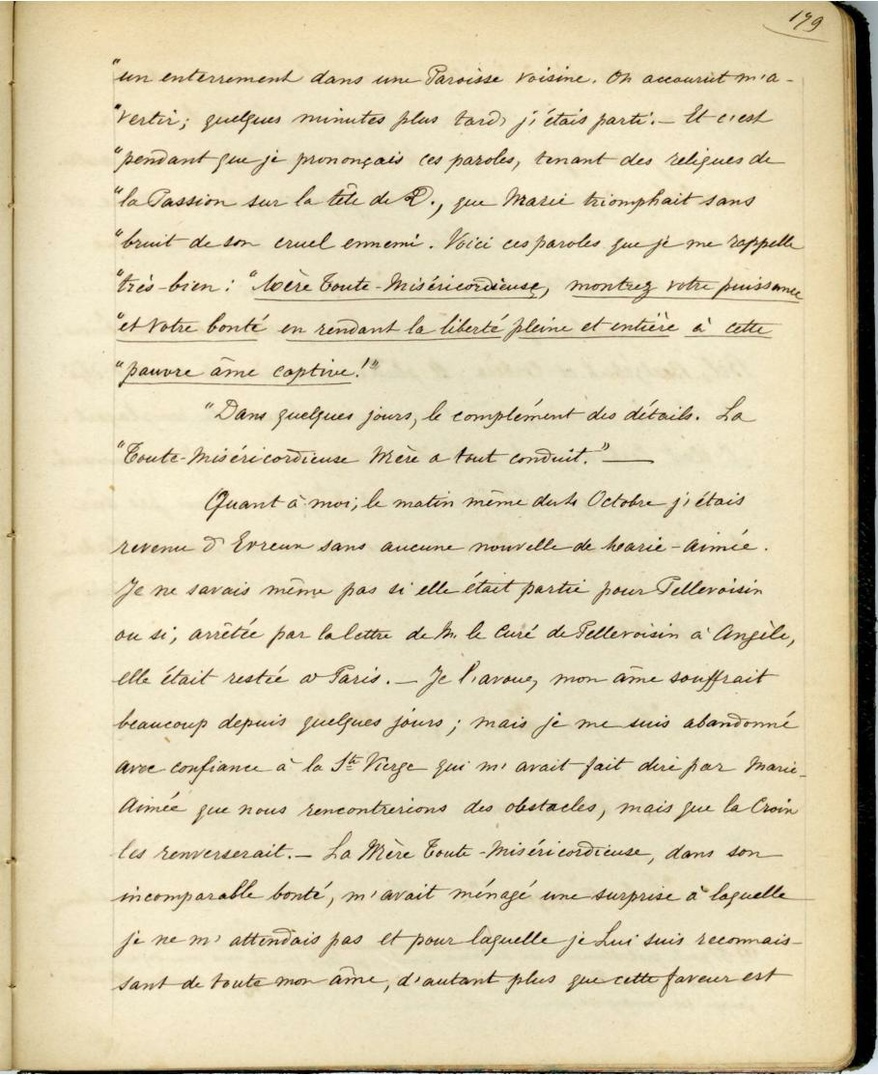 179
"un enterrement dans une Paroisse voisine. On accourut m'a-
"vertir; quelques minutes plus tard, j'étais parti. — Et c'est
"pendant que je prononçais ces paroles, tenant des reliques de
"la Passion sur la tête de P., que Marie triomphait sans
"bruit de son cruel ennemi. Voici ces paroles que je me rappelle
"très-bien: "Mère Toute-Miséricordieuse, montrez votre puissance
"et votre bonté en rendant la liberté pleine et entière à cette
"pauvre âme captive!"
"Dans quelques jours, le complément des détails. La
"Toute-Miséricordieuse Mère a tout conduit." —
Quant à moi, le matin même du 4 Octobre j'étais
revenu d'Evreux sans aucune nouvelle de Marie-Aimée.
Je ne savais même pas si elle était partie pour Pellevoisin
ou si, arrêtée par la lettre de M. le Curé de Pellevoisin à Angèle,
elle était restée à Paris. — Je l'avoue, mon âme souffrait
beaucoup depuis quelques jours; mais je me suis abandonné
avec confiance à la Ste Vierge qui m'avait fait dire par Marie-
Aimée que nous rencontrerions des obstacles, mais que la Croix
les renverserait. — La Mère Toute-Miséricordieuse, dans son
incomparable bonté, m'avait ménagé une surprise à laquelle
je ne m'attendais pas et pour laquelle je Lui suis reconnais-
sant de toute mon âme, d'autant plus que cette faveur est